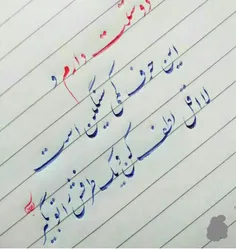 دوستت دارم و
این حرف کمی سنگین است
لااقل لطف کن و یک طرفش را تو بگیر